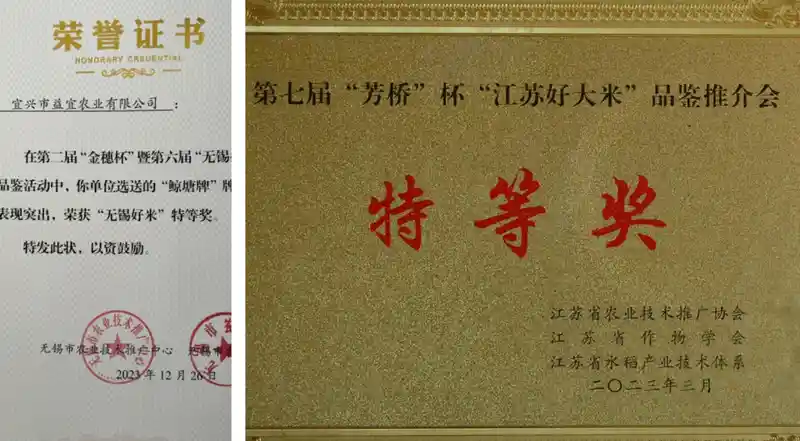 荣誉证书
HONORARY CREDENTIAL
宜兴市益宜农业有限公司 ：
在第二届“金穗杯”暨第六届“无锡
品鉴活动中，你单位选送的“鲸塘牌”牌
表现突出，荣获“无锡好米”特等奖。
特发此状，以资鼓励。
无锡市农业技术推广中心 无锡市
2023年12月26日
第七届“芳桥”杯“江苏好大米”品鉴推介会
特等奖
江苏省农业技术推广协会
江苏省作物学会
江苏省水稻产业技术体系
二〇二三年三月